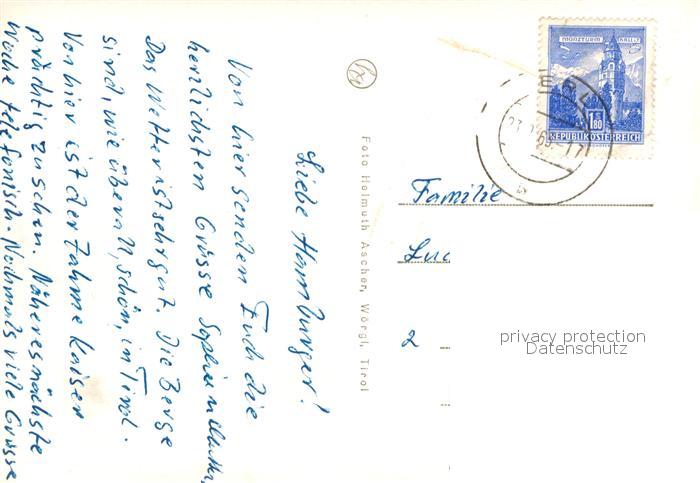 Liebe Hamburger!
Von hier senden Euch die
herzlichsten Grüsse Sophie u.
Das Wetter ist sehr gut. Die Berge
sind, wie überall, schön, in Tirol.
Von hier ist der Zahme Kaiser
prächtig zu sehen. Näheres nächste
Woche telefonisch. Nochmals viele Grüsse
Foto Helmuth Ascher, Wörgl, Tirol
MÜNZTURM HALL I. T.
1.80
REPUBLIK ÖSTERREICH
Familie
Luc
2
privacy protection
Datenschutz